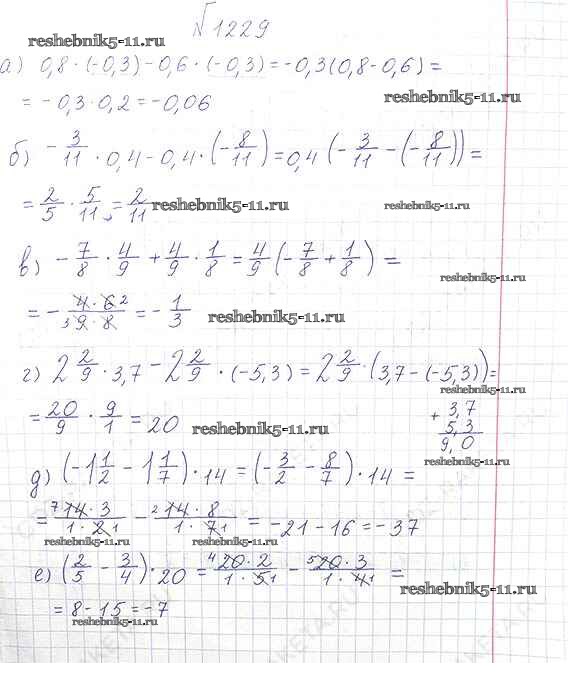 №1229
reshebnik5-11.ru
а) 0,8 · (-0,3) - 0,6 · (-0,3) = -0,3(0,8 - 0,6) =
= -0,3 · 0,2 = -0,06
reshebnik5-11.ru
б) -3/11 · 0,4 - 0,4 · (-8/11) = 0,4 (-3/11 - (-8/11)) =
= 2/5 · 5/11 = 2/11
reshebnik5-11.ru
reshebnik5-11.ru
в) -7/8 · 4/9 + 4/9 · 1/8 = 4/9 (-7/8 + 1/8) =
reshebnik5-11.ru
= - 4 · 6 2 / 3 9 · 8 = - 1/3
reshebnik5-11.ru
г) 2 2/9 · 3,7 - 2 2/9 · (-5,3) = 2 2/9 · (3,7 - (-5,3)) =
reshebnik5-11.ru
= 20/9 · 9/1 = 20
reshebnik5-11.ru
+ 3,7
5,3
9,0
reshebnik5-11.ru
д) (-1 1/2 - 1 1/7) · 14 = (-3/2 - 8/7) · 14 =
= 7 14 · 3 / 1 · 2 1 - 2 14 · 8 / 1 · 7 1 = -21 - 16 = -37
reshebnik5-11.ru
reshebnik5-11.ru
е) (2/5 - 3/4) · 20 = 4 20 · 2 / 1 · 5 1 - 5 20 · 3 / 1 · 4 1 =
reshebnik5-11.ru
= 8 - 15 = -7
reshebnik5-11.ru